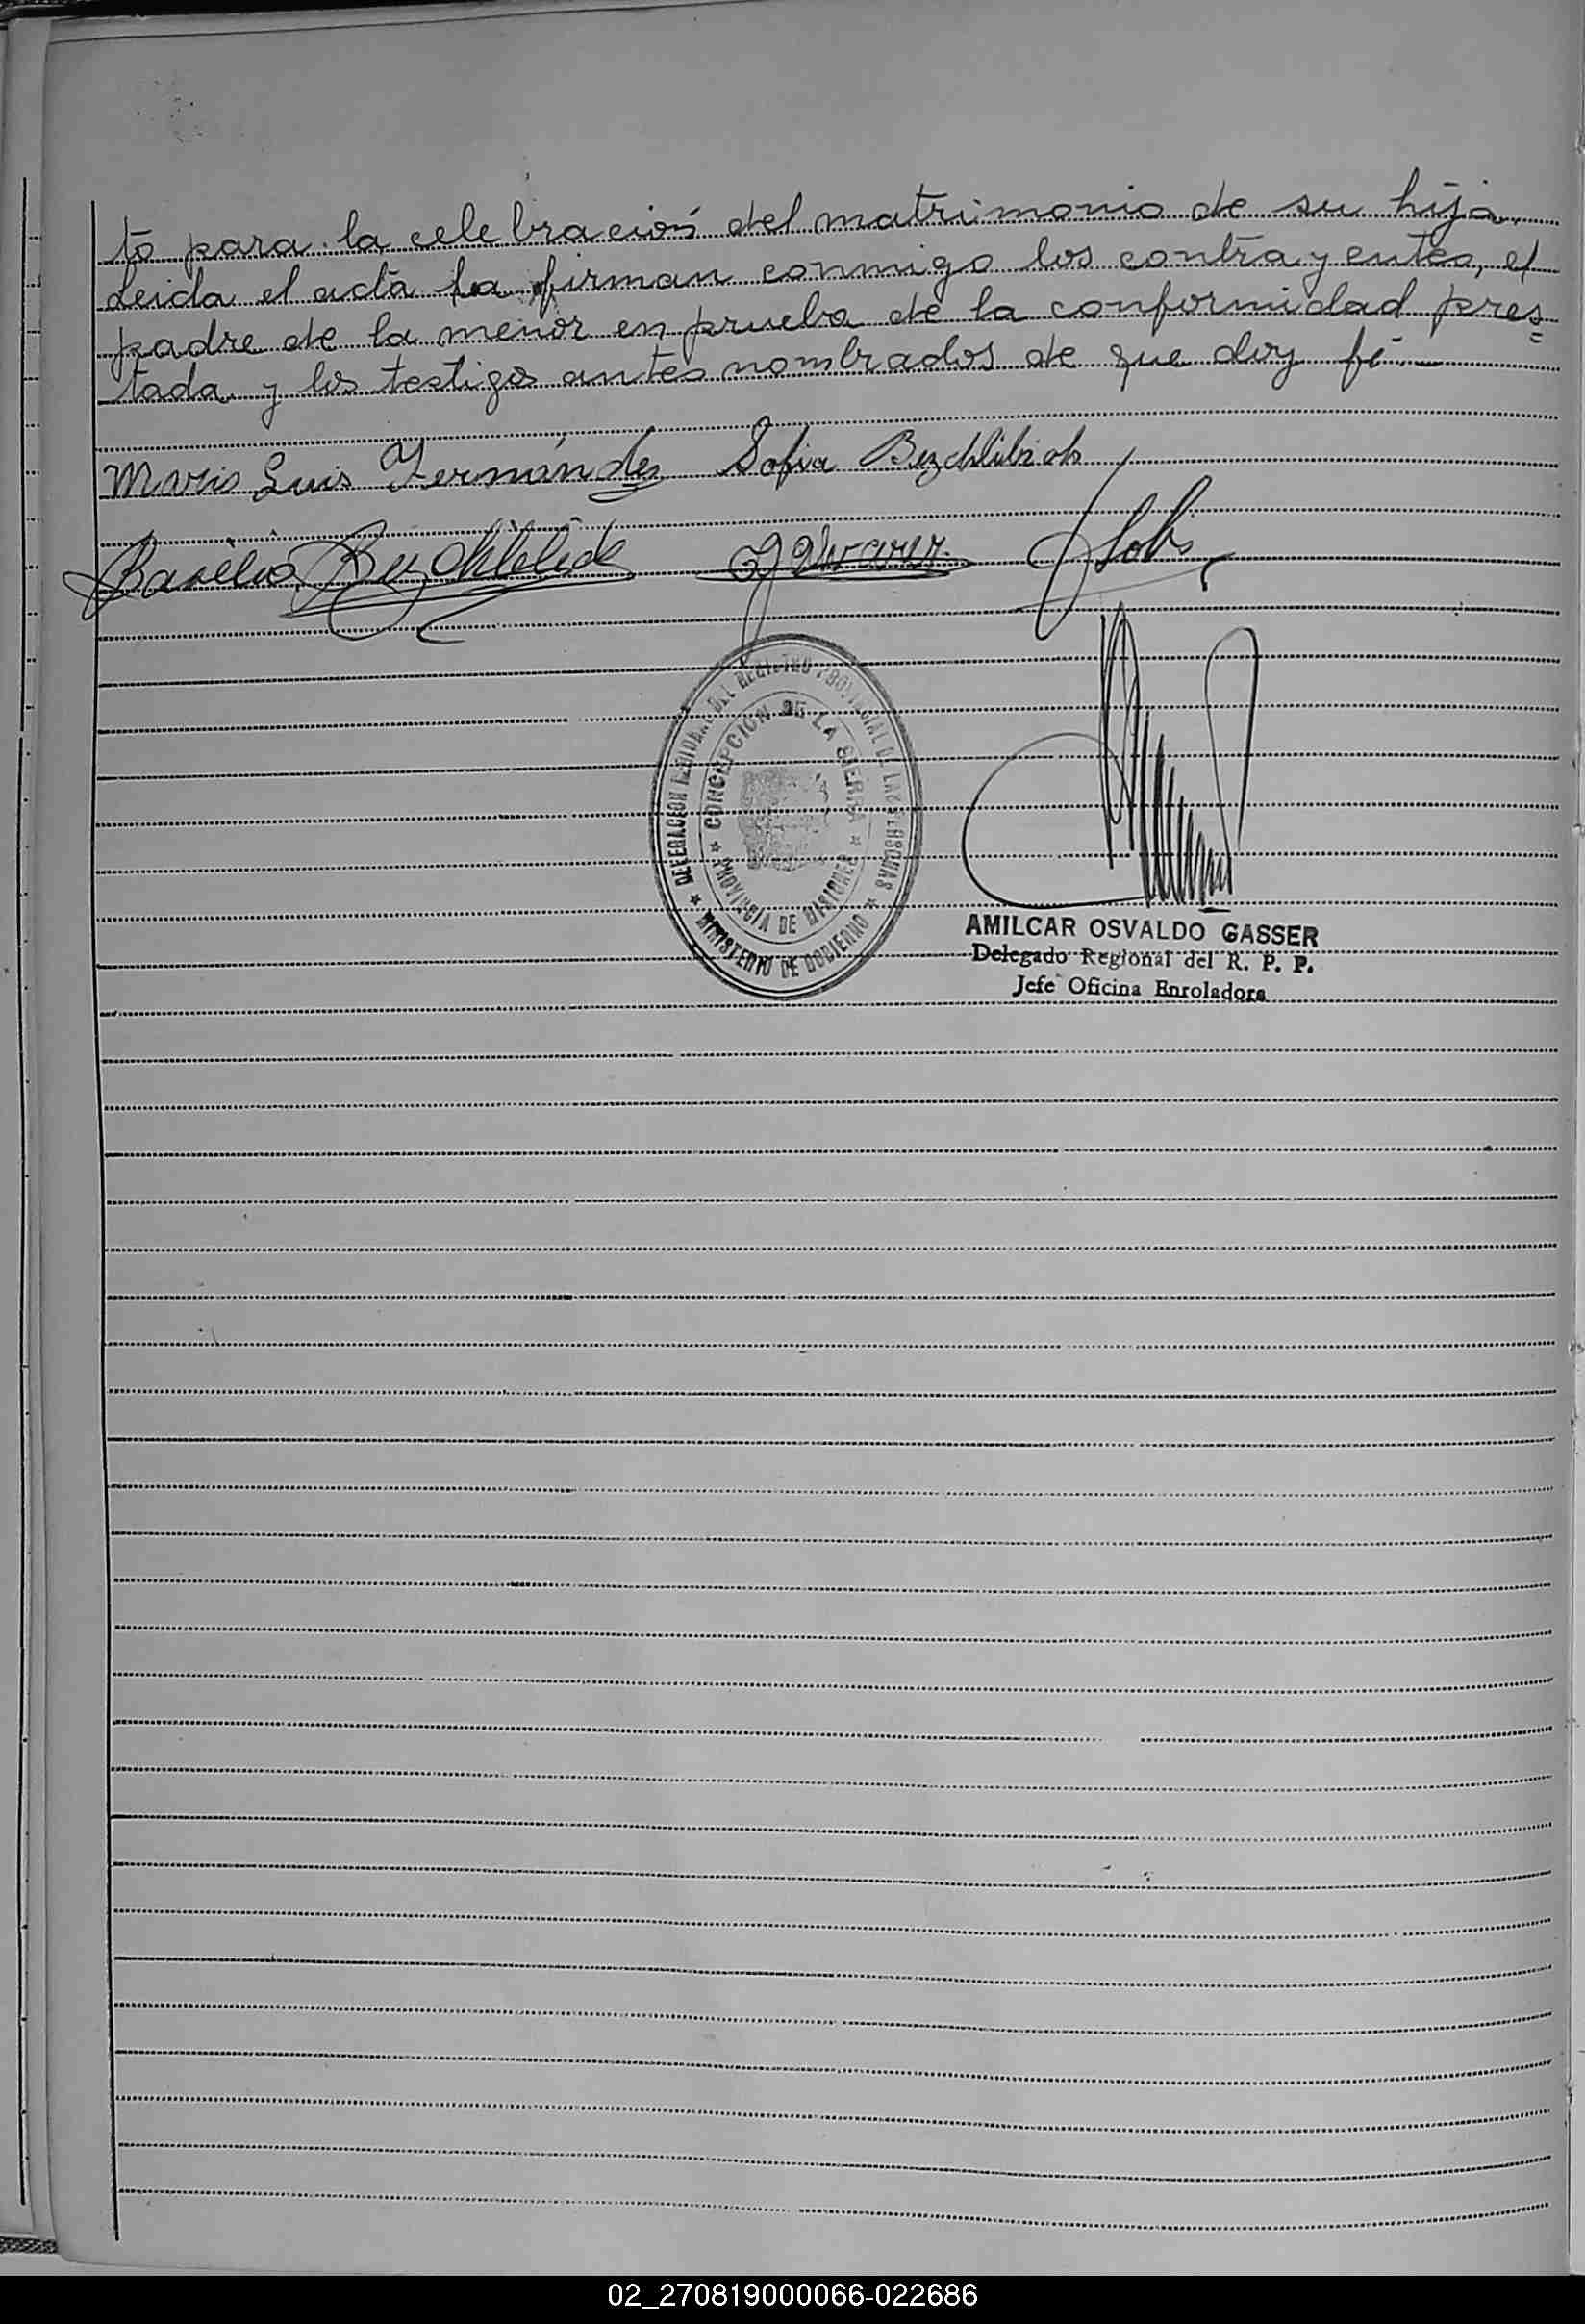 to para la celebración del matrimonio de su hija.
Leida el acta la firman conmigo los contrayentes, el
padre de la menor en prueba de la conformidad pres=
tada y los testigos antes nombrados de que doy fé.—
Luis Fernández Sofia Bezchlibich
Basilio
DELEGACION REGIONAL DEL REGISTRO PROVINCIAL DE LAS PERSONAS
CONCEPCIÓN DE LA SIERRA
PROVINCIA DE MISIONES
MINISTERIO DE GOBIERNO
AMILCAR OSVALDO GASSER
Delegado Regional del R. P. P.
Jefe Oficina Enroladora
02_270819000066-022686